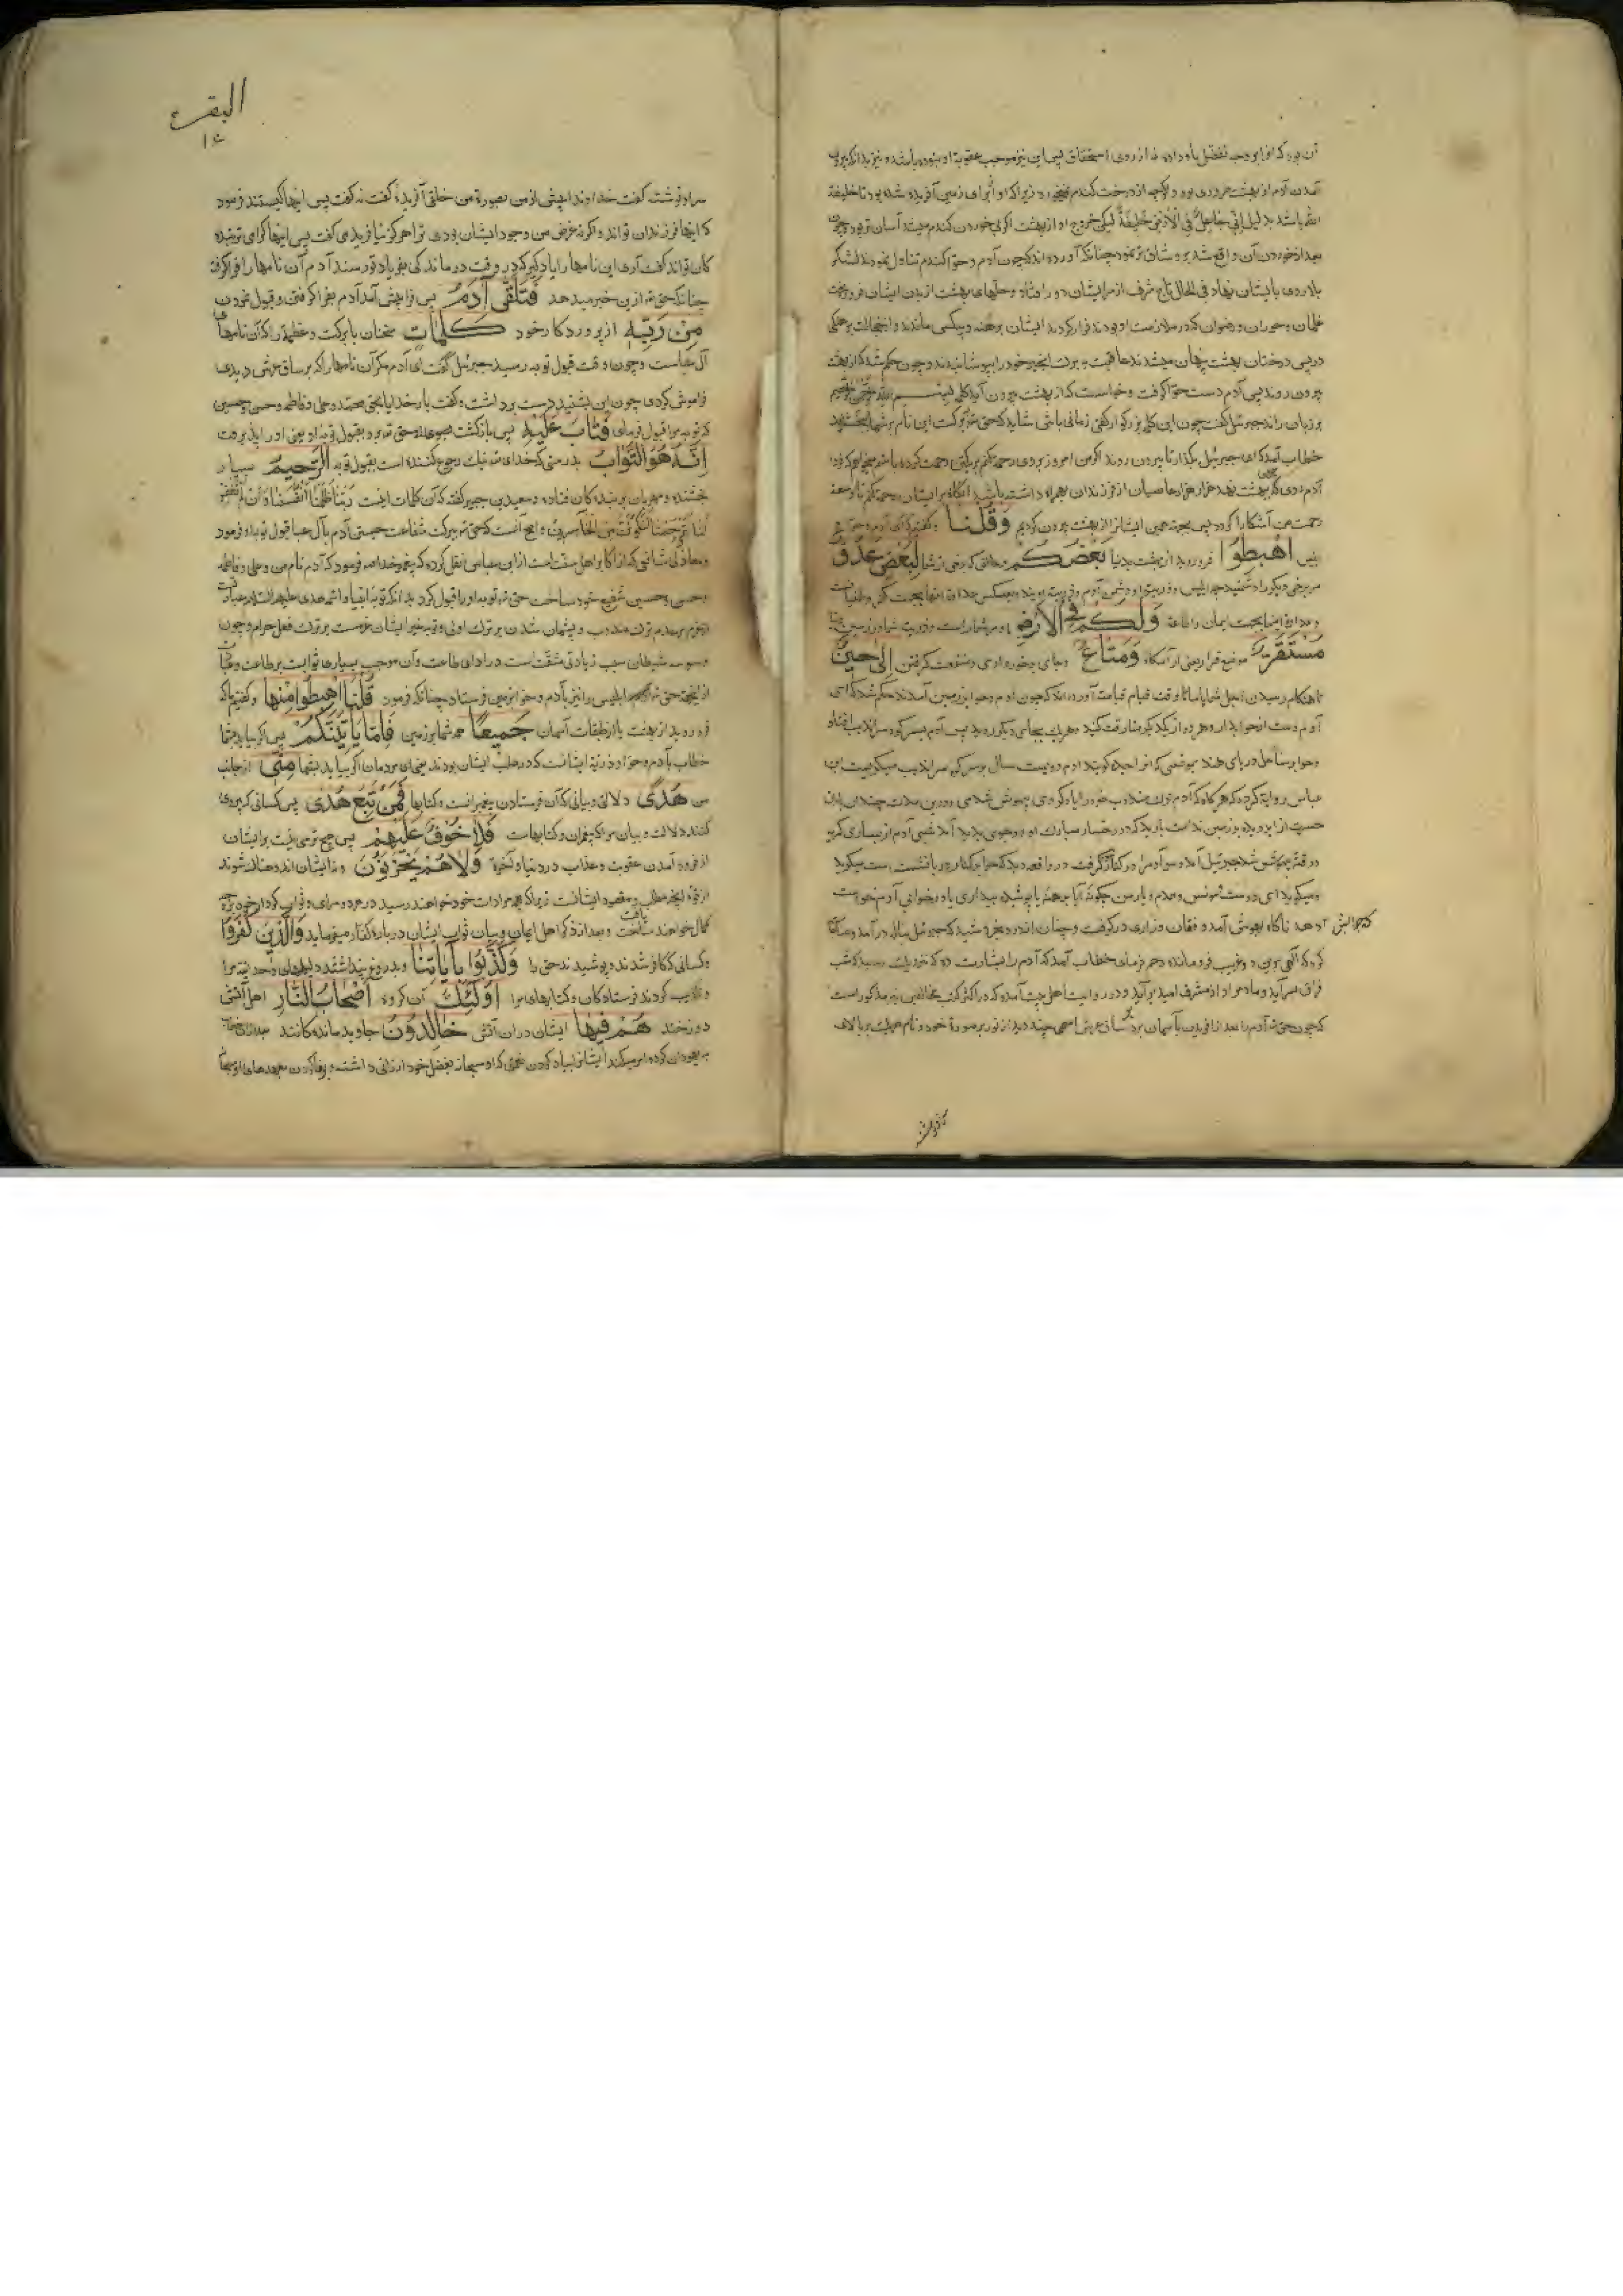 آن بود که او را بر وجه تفضل باو داده نه از روی استحقاق پس این نیز موجب عقوبة او نبوده باشد و نیز بدانکه بیرون
آمدن آدم از بهشت ضروری بود و اگرچه از درخت کندم نمیخورد زیرا که او را برای زمین آفریده شده بود تا خلیفهٔ
باشد بدلیل اِنّی جاعِلٌ فِی الْاَرْضِ خَلیفَةً لیکن خروج او از بهشت اگر بی خوردن کندم میشد آسان تر بود و چون
بعد از خوردن آن واقع شد برو شاق تر نمود چنانکه آورده اند که چون آدم و حوا کندم تناول نمودند لشکر
بلا روی بایشان نهاد فی الحال تاج شرف از سر ایشان دور افتاد و حلهای بهشت از بدن ایشان فرو ریخت
غلمان و حوران و رضوان که در ملازمت او بودند فرار کردند ایشان برهنه و بیکس ماندند و از خجالت برهنکی
در پس درختان بهشت پنهان میشدند عاقبت ببرک انجیر خود را بپوشانیدند و چون حکم شد که از بهشت
بیرون روند پس آدم دست حوا گرفت و خواست که از بهشت بیرون آید کلمه بسم الله الرحمن الرحیم
بر زبان راند جبرئیل گفت چون این کلمه بزرکوار گفتی زمانی باش شاید که حق تعالی ببرکت این نام بر شما بخشاید
خطاب آمد که ای جبرئیل بگذار تا بیرون روند اگر من امروز بروی رحمت کنم بر یکتن رحمت کرده باشم میخواهم که فردا
آدم روی که ببهشت نهد هزار هزار عاصیان از فرزندان بهمراه داشته باشد آنکاه بر ایشان رحمت کنم تا وسعة
رحمت من آشکارا کردد پس بجهت همین ایشانرا از بهشت بیرون کردیم وَقُلْنَا و کفتیم که ای آدم و حوا و
ابلیس اهْبِطُوا فرو روید از بهشت بدنیا بَعْضُكُمْ در حالتی که برخی از شما لِبَعْضٍ عَدُوٌّ
مر برخی دیکر را دشمنید چه ابلیس و ذریت او دشمن آدم و ذریت اویند و بعکس عداوة اینها بجهت کفر و طغیانست
و عداوة اینها بجهت ایمان و اطاعة وَلَكُمْ فِى الْاَرْضِ و مر شما راست و ذریت شما در زمین
مُسْتَقَرٌّ موضع قرار یعنی آرامکاه وَمَتَاعٌ و جای برخورداری و منفعت کرفتن اِلٰى حِينٍ
تا هنکام رسیدن اجل شما یا تا وقت قیام قیامت آورده اند که چون آدم و حوا بزمین آمدند حکم شد که ای
آدم دست از حوا بدار و هر دو از یکدیکر مفارقت کنید و هر یک بجای دیکر روید پس آدم بسر کوه سراندیب افتاد
و حوا بساحل دریای هند بموضعی که انرا جده کویند آدم دویست سال بر سر کوه سراندیب میکریست ابن
عباس روایة کرده که هر کاه که آدم ترک مندوب خود را یاد کردی بیهوش شدی و درین مدت چندان باران
حسرت از ابر دیده بر زمین ندامت بارید که در رخسار مبارک او دو جوی پدید آمد شبی آدم از بسیاری کریه
در وقتی بیهوش شد جبرئیل آمد و سر آدم را در کنار گرفت در واقعه دید که حوا بر کنار دریا نشسته است میکرید
و میکوید ای دوست مونس و همدم و یار من چکونهٔ آیا برهنهٔ یا پوشیده بیداری یا در خوابی آدم خواست
که جوابش دهد ناکاه بهوش آمد و فغان و زاری درکرفت
فراق بسر آید و ماه مراد از مشرق امید برآید و در روایت اهل بیت آمده که در اکثر کتب مخالفین نیز مذکور است
که چون حق تعالی آدم را بعد از آفریدن بآسمان برد بر ساق عرش اسمی چند دید از نور بر صورة خود و نام هر یک بر بالای
البقره
سر او نوشته گفت خداوندا پیش از من بصورة من خلقی آفریدهٔ گفت نه گفت پس اینها کیستند فرمود
که اینها فرزندان تو اند و اگر نه غرض من وجود ایشان بودی ترا هرگز نیافریدمی گفت پس اینها گرامی ترین بندگان
تو اند گفت آری این نامها را یاد گیر که در وقت درماندکی بفریاد تو رسند آدم آن نامها را فرا گرفت
چنانکه حق تعالی ازین خبر میدهد فَتَلَقّٰى آدَمُ پس فرا پیش آمد آدم بفرا گرفتن و قبول نمودن
مِنْ رَبِّهِ از پروردکار خود كَلِمَاتٍ سخنان با برکت و عظیم را که آن نامهای
آل عباست و چون وقت قبول توبه رسید جبرئیل گفت ای آدم مکر آن نامها را که بر ساق عرش دیدی
فراموش کردی چون این بشنید دست برداشت و گفت بار خدایا بحق محمد و علی و فاطمه و حسن و حسین
که توبه مرا قبول فرمای فَتَابَ عَلَيْهِ پس بازگشت
اِنَّهُ هُوَ التَّوَّابُ بدرستی که خدای تعالی نیک رجوع کننده است بقبول توبه الرَّحِيمُ بسیار
بخشنده و مهربان بر بندگان و سعید بن جبیر گفته که آن کلمات اینست رَبَّنَا ظَلَمْنَا اَنْفُسَنَا وَاِنْ لَمْ تَغْفِرْ
لَنَا وَتَرْحَمْنَا لَنَكُونَنَّ مِنَ الْخَاسِرِينَ و اصح آنست که حق تعالی ببرکت شفاعت جستن آدم بآل عبا قبول توبه او فرمود
و مغازلی شافعی که از اکابر اهل سنت است از ابن عباس نقل کرده که پیغمبر خدا فرمود که آدم نام من و علی و فاطمه
و حسن و حسین شفیع خود ساخت حق تعالی توبه او را قبول کرد بدانکه توبه انبیا و ائمه هدی علیهم السلام عبارت
از عزم بر عدم ترک مندوب و پشیمان شدن بر ترک اولی و توبه غیر ایشان عزمست بر ترک فعل حرام و چون
وسوسه شیطان سبب زیادتی مشقتست در ادای طاعت و آن موجب بسیاری ثوابست بر طاعت و عبادت
از این جهت حق تعالی ابلیس را نیز با آدم و حوا بزمین فرستاد چنانکه فرمود قُلْنَا اهْبِطُوا مِنْهَا و کفتیم که
فرو روید از بهشت یا از طبقات آسمان جَمِيعًا همه شما بزمین فَاِمَّا يَأْتِيَنَّكُمْ پس اگر بیاید بشما
خطاب بآدم و حوا و ذریة ایشانست که در صلب ایشان بودند یعنی ای مردمان اگر بیاید بشما مِنِّى از جانب
من هُدًى دلالتی و بیانی که آن فرستادن پیغمبرانست و کتابها فَمَنْ تَبِعَ هُدَاىَ پس کسانی که پیروی
کنند دلالت و بیان مرا که پیغمبران و کتابهاست فَلَا خَوْفٌ عَلَيْهِمْ پس هیچ ترسی نیست بر ایشان
از فرود آمدن عقوبت و عذاب در دنیا و آخرة وَلَا هُمْ يَحْزَنُونَ و نه ایشان اندوهناک شوند
از فوة آنچه مطلب و مقصود ایشانست زیرا که بهمه مرادات خود خواهند رسید در هر دو سرای و ثواب کردار خود بر وجه
کمال خواهند یافت و بعد از ذکر اهل ایمان و بیان ثواب ایشان در باره کفار میفرماید وَالَّذِينَ كَفَرُوا
و کسانی که کافر شدند و پوشیدند حق را وَكَذَّبُوا بِآيَاتِنَا و بدروغ پنداشتند دلیلهای وحدانیت مرا
و تکذیب کردند فرستادکان و کتابهای مرا اُولٰئِكَ آن گروه اَصْحَابُ النَّارِ اهل آتش
دوزخند هُمْ فِيهَا ایشان در ان آتش خَالِدُونَ جاوید ماندکانند